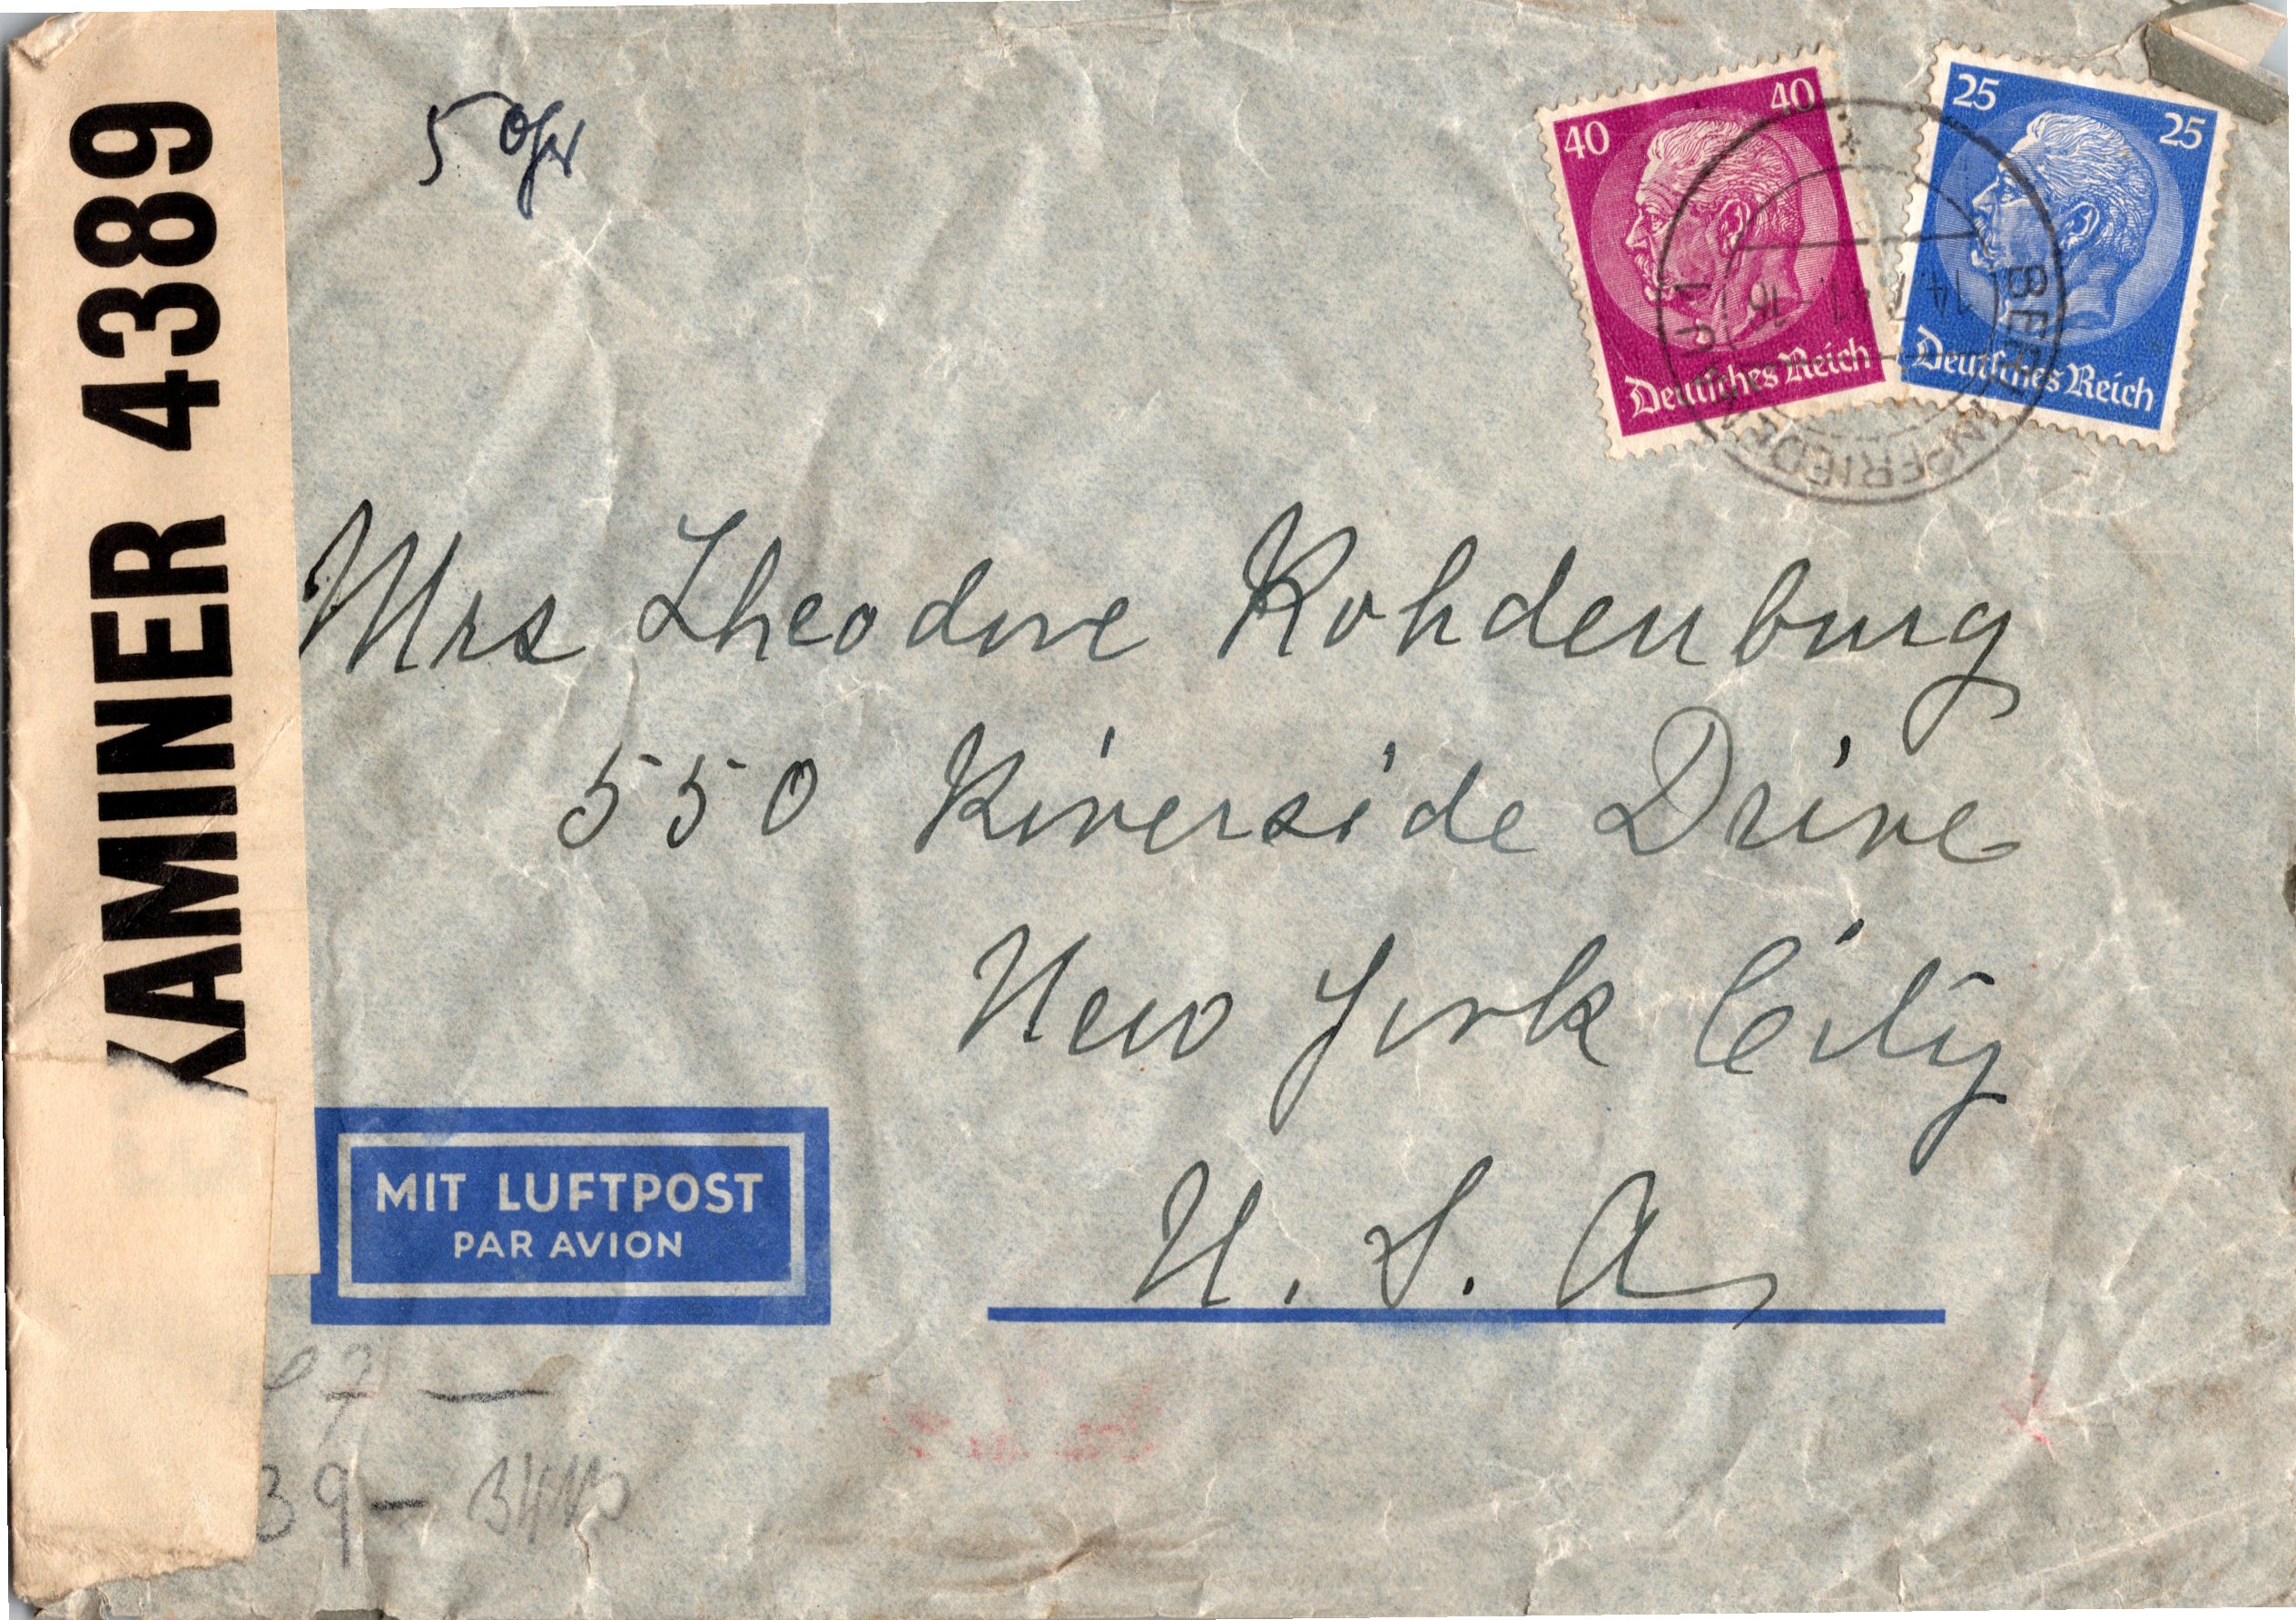 EXAMINER 4389
5 0gr
40
40
Deutsches Reich
25
25
Deutsches Reich
BERLIN-FRIEDENAU 1
14.7.41.-16
Mrs Theodore Rohdenburg
550 Riverside Drive
New York City
U. S. A
MIT LUFTPOST
PAR AVION
7 —
39 —